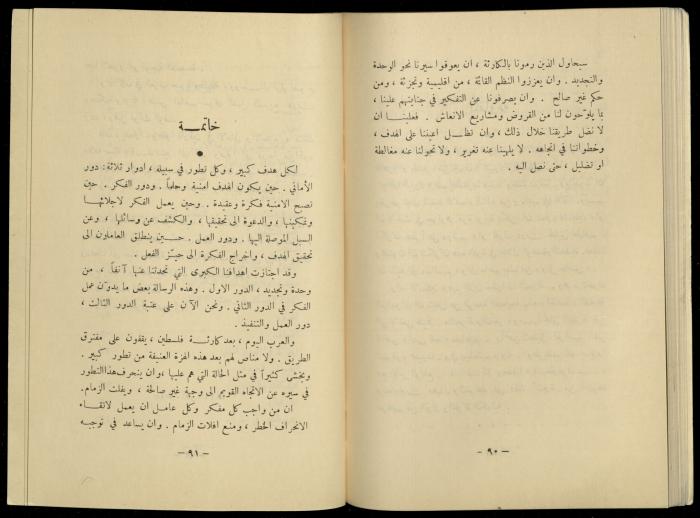 سيحاول الذين رمونا بالكارثة ، ان يعوقوا سيرنا نحو الوحدة
والتجديد . وان يعززوا النظم القائمة ، من اقليمية وتجزئة ، ومن
حكم غير صالح . وان يصرفونا عن التفكير في جنايتهم علينا ،
بما يلوّحون لنا من القروض ومشاريع الانعاش . فعلينا ان
لا نضل طريقنا خلال ذلك ، وان تظل اعيننا على الهدف ،
وخطواتنا في اتجاهه . لا يلهينا عنه تغرير ، ولا تحولنا عنه مغالطة
او تضليل ، حتى نصل اليه .
— ٩٠ —
خاتمة
لكل هدف كبير ، وكل تطور في سبيله ، ادوار ثلاثة : دور
الأماني . حين يكون الهدف امنية وحلماً . ودور الفكر . حين
تصبح الامنية فكرة وعقيدة . وحين يعمل الفكر لاجلائها
وتمكينها ، والدعوة الى تحقيقها ، والكشف عن وسائلها ، وعن
السبل الموصلة اليها . ودور العمل . حين ينطلق العاملون الى
تحقيق الهدف ، واخراج الفكرة الى حيّز الفعل .
وقد اجتازت اهدافنا الكبرى التي تحدثنا عنها آنفاً ، من
وحدة وتجديد ، الدور الاول . وهذه الرسالة بعض ما يدوّن عمل
الفكر في الدور الثاني . ونحن الآن على عتبة الدور الثالث ،
دور العمل والتنفيذ .
والعرب اليوم ، بعد كارثة فلسطين ، يقفون على مفترق
الطريق . ولا مناص لهم بعد هذه الهزة العنيفة من تطور كبير .
ويخشى كثيراً في مثل الحالة التي هم عليها ، وان ينحرف هذا التطور
في سيره عن الاتجاه القويم الى وجهة غير صالحة ، ويفلت الزمام .
ان من واجب كل مفكر وكل عامل ان يعمل لاتقاء
الانحراف الخطر ، ومنع افلات الزمام . وان يساعد في توجيه
— ٩١ —